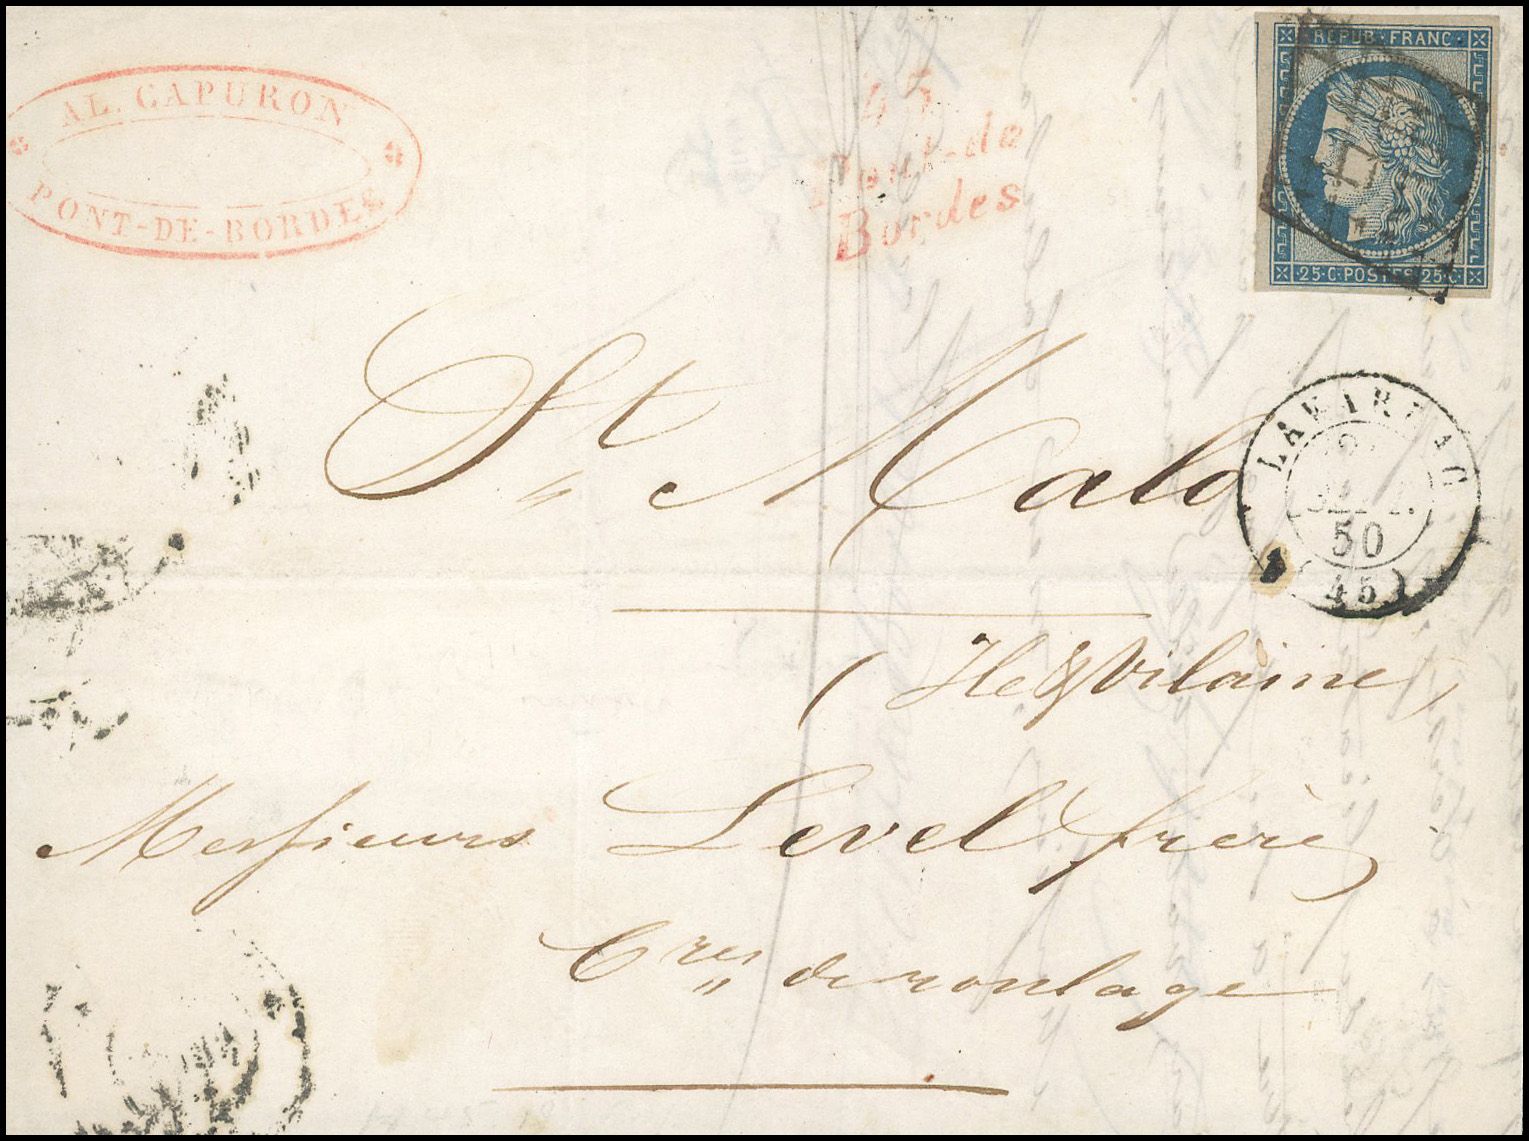 AL. CAPURON
PONT-DE-BORDES
45
Pont-de
Bordes
REPUB. FRANC.
25·C·POSTES·25·C·
LAVARDAC
SEPT.
50
(45)
St Malo
(Ile & Vilaine)
Messieurs Level frère
Cres de roulage